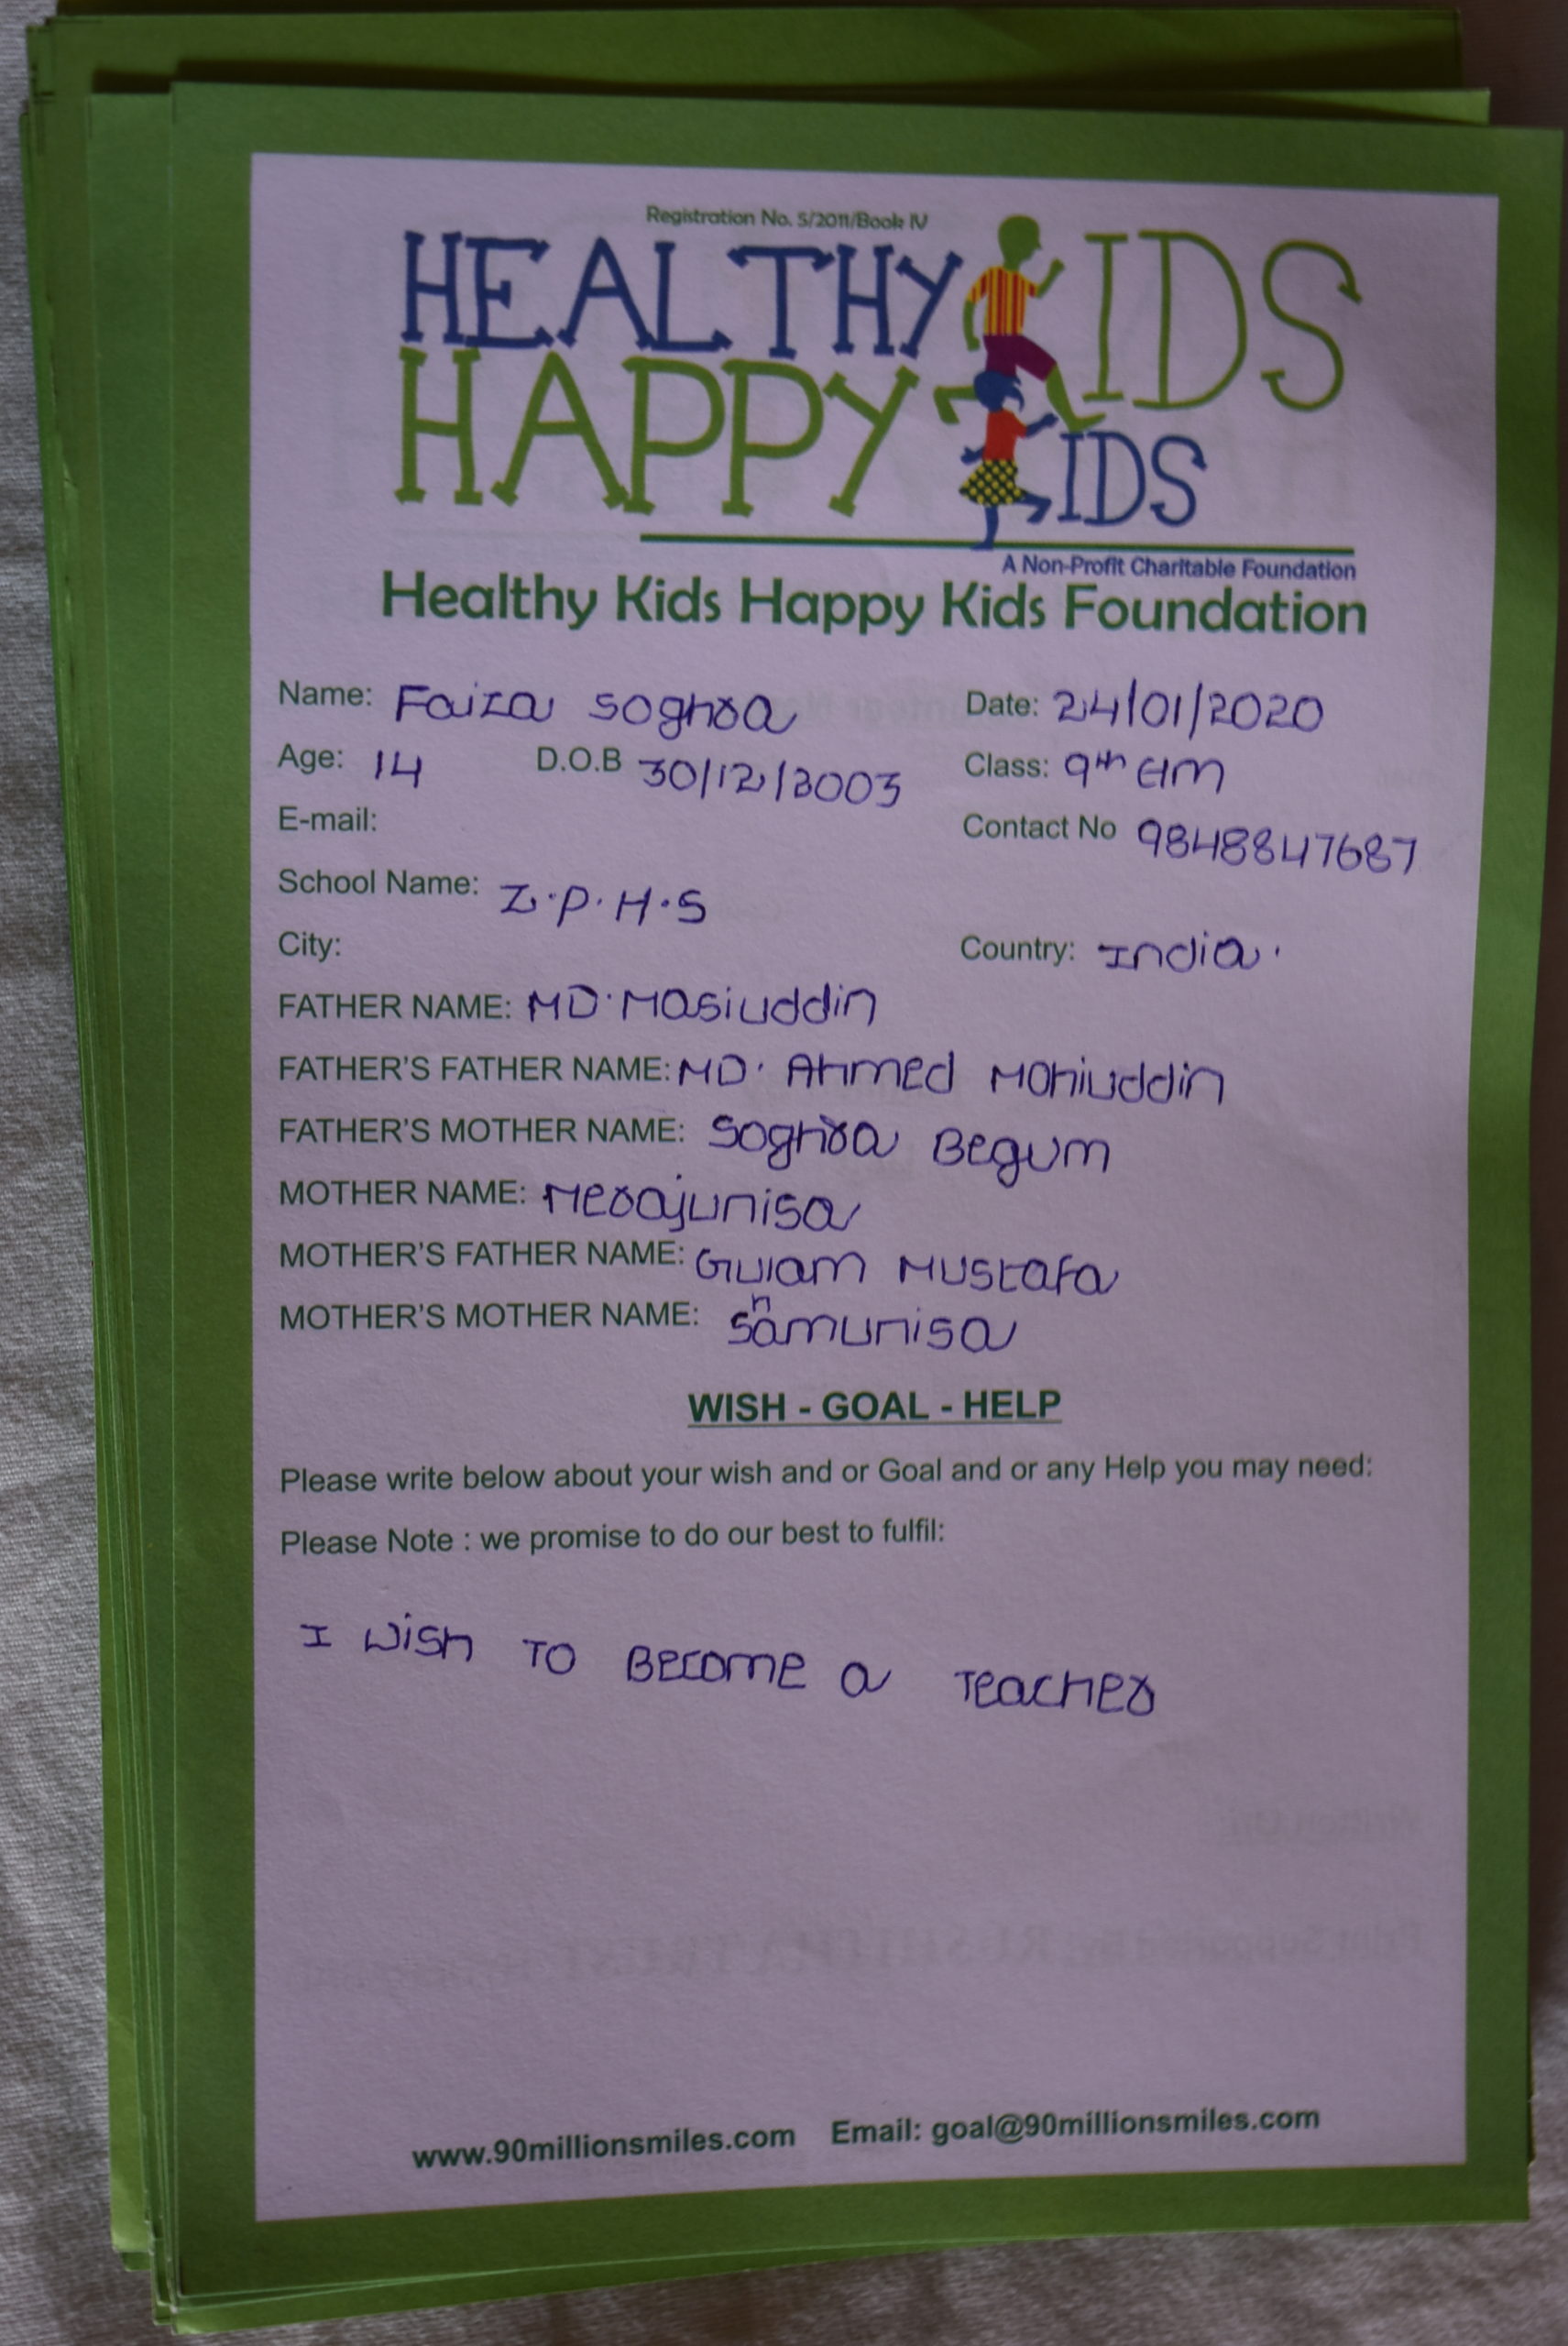 Registration No. 5/2011/Book IV
HEALTHY KIDS
HAPPY KIDS
A Non-Profit Charitable Foundation
Healthy Kids Happy Kids Foundation
Name: Faiza Soghra Date: 24/01/2020
Age: 14 D.O.B 30/12/2003 Class: 9th EM
E-mail: Contact No 9848847687
School Name: Z.P.H.S
City: Country: India.
FATHER NAME: MD. Masiuddin
FATHER'S FATHER NAME: MD. Ahmed Mohiuddin
FATHER'S MOTHER NAME: Soghra Begum
MOTHER NAME: Merajunisa
MOTHER'S FATHER NAME: Gulam Mustafa
MOTHER'S MOTHER NAME: Shamunisa
WISH - GOAL - HELP
Please write below about your wish and or Goal and or any Help you may need:
Please Note : we promise to do our best to fulfil:
I wish To Become a Teacher
www.90millionsmiles.com Email: goal@90millionsmiles.com